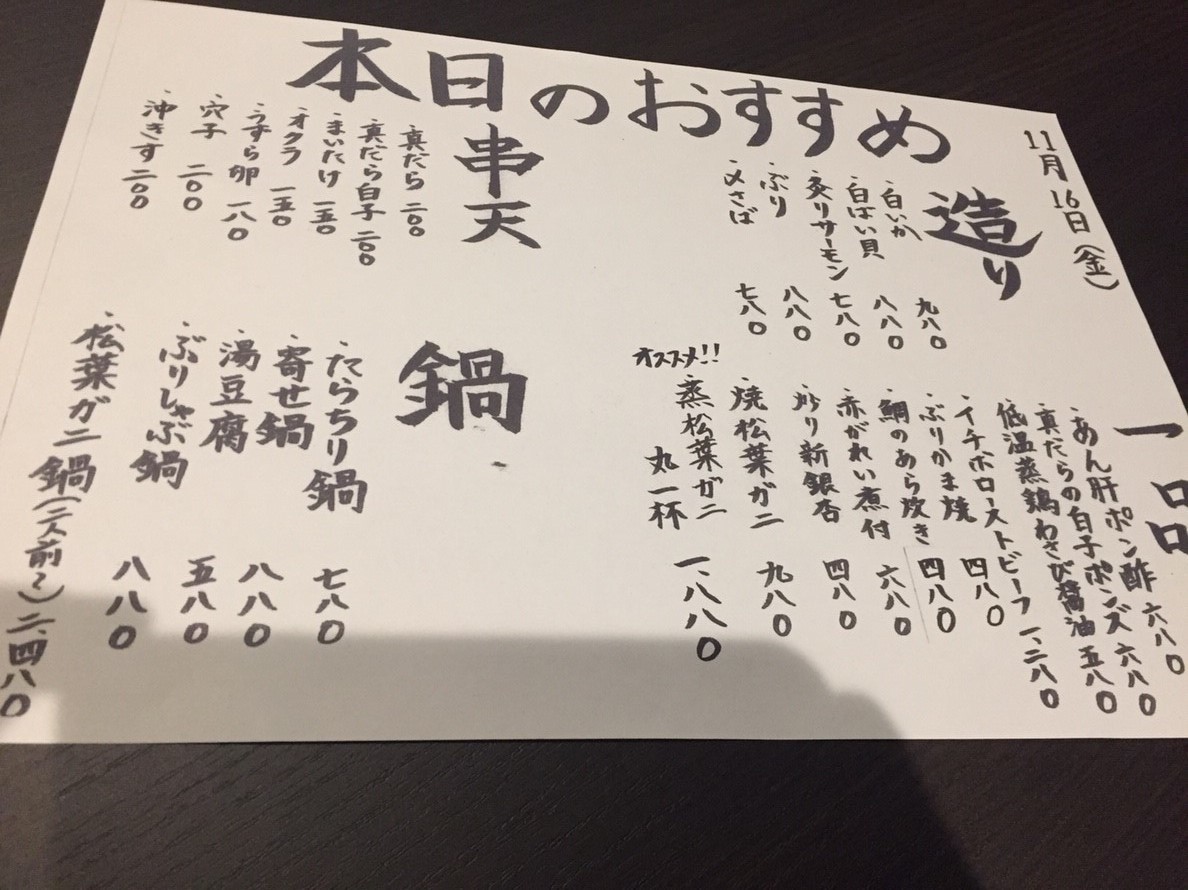 本日のおすすめ
11月16日(金)
造り
・白いか 九八〇
・白ばい貝 八八〇
・炙りサーモン 七八〇
・ぶり 八八〇
・〆さば 七八〇
一品
・あん肝ポン酢 六八〇
・真だらの白子ポンズ 六八〇
・低温蒸鶏わさび醤油 五八〇
・イチボローストビーフ 一、二八〇
・ぶりかま焼 四八〇
・鯛のあら炊き 四八〇
・赤がれい煮付 六八〇
・炒り新銀杏 四八〇
・焼松葉ガニ 九八〇
オススメ!!
・蒸松葉ガニ 一、八八〇
丸一杯
串天
・真だら 二〇〇
・真だら白子 二〇〇
・まいたけ 一五〇
・オクラ 一五〇
・うずら卵 一八〇
・穴子 二〇〇
・沖きす 二〇〇
鍋
・たらちり鍋 七八〇
・寄せ鍋 八八〇
・湯豆腐 五八〇
・ぶりしゃぶ鍋 八八〇
・松葉ガニ鍋(二人前〜) 二、四八〇